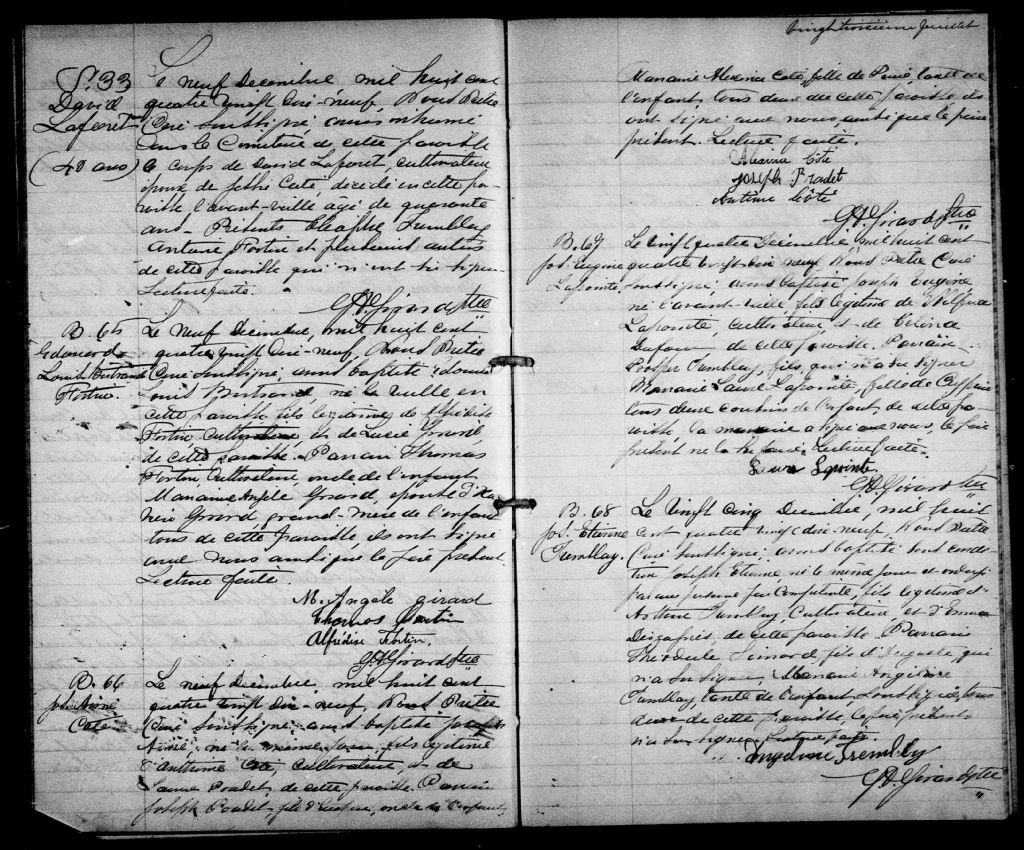 S. 33
David
Laforet
(40 ans)
Le neuf Decembre mil huit cent
quatre vingt dix-neuf, Nous Prêtre
Curé soussigné, avons inhumé
dans le Cimetière de cette paroisse
le corps de David Laforet, cultivateur
époux de Coté, décédé en cette pa-
roisse l'avant-veille âgé de quarante
ans. Présents Cléophe Tremblay
Fortin et plusieurs autres
de cette paroisse qui n'ont su signer
Lecture faite.
Girard Ptre
B. 65
Edouard
Louis Bertrand
Fortin.
Le Neuf Decembre, mil huit cent
quatre vingt dix-neuf, Nous Prêtre
Curé soussigné, avons baptisé Edouard
Louis Bertrand, né la veille en
cette paroisse fils légitime de Alfrédise
Fortin, Cultivateur, et de Lucie Girard,
de cette paroisse. Parrain Thomas
Fortin, Cultivateur, oncle de l'enfant
Marraine Angèle Girard, épouse d'
Girard, grand-mère de l'enfant
tous de cette paroisse ils ont signé
avec nous ainsi que le père présent.
Lecture faite.
M. Angèle Girard
Thomas Fortin
Alfrédise Fortin.
Girard Ptre
B. 66
Jos. Aimé
Coté
Le neuf Decembre, mil huit cent
quatre vingt dix-neuf, Nous Prêtre
Curé soussigné avons baptisé Joseph
Aimé, né le même jour, fils légitime
d' Coté, cultivateur, et de
Pradet, de cette paroisse. Parrain
Joseph Pradet, fils d' oncle de l'enfant,
vingt troisième feuillet
Marraine Coté, fille de tante de
l'enfant, tous deux de cette paroisse ils
ont signé avec nous, ainsi que le père
présent. Lecture faite.
Coté
Joseph Pradet
Antime Coté
Girard Ptre
B. 67
Jos. Eugène
Lapointe
Le vingt quatre Décembre, mil huit cent
quatre vingt dix neuf Nous Prêtre Curé
soussigné avons baptisé Joseph Eugène
né l'avant-veille, fils légitime de Wilfrid
Lapointe, cultivateur, et de Délina
Dufour de cette paroisse. Parrain
Tremblay, fils, qui n'a su signer
Marraine Laure Lapointe, fille de
tous deux cousins de l'enfant, de cette pa-
roisse, la marraine a signé avec nous, le père
présent ne l'a Lecture faite.
Laura Lapointe
Girard Ptre
B. 68
Jos. Etienne
Tremblay.
Le Vingt Cinq Décembre, mil huit
cent quatre vingt dix-neuf, Nous Prêtre
Curé soussigné avons baptisé sous condi-
tion Joseph Etienne, né le même jour et ondoyé
par une personne compétente, fils légitime d'
Arthur Tremblay, Cultivateur, et d'Emma
Desgagnés, de cette paroisse. Parrain
Théodule Simard, fils d'Auguste, qui
n'a su signer, Marraine Angéline
Tremblay, tante de l'enfant, soussignée, tous
deux de cette paroisse, le père présent
n'a su signer. Lecture faite.
Angéline Trembly
Girard Ptre